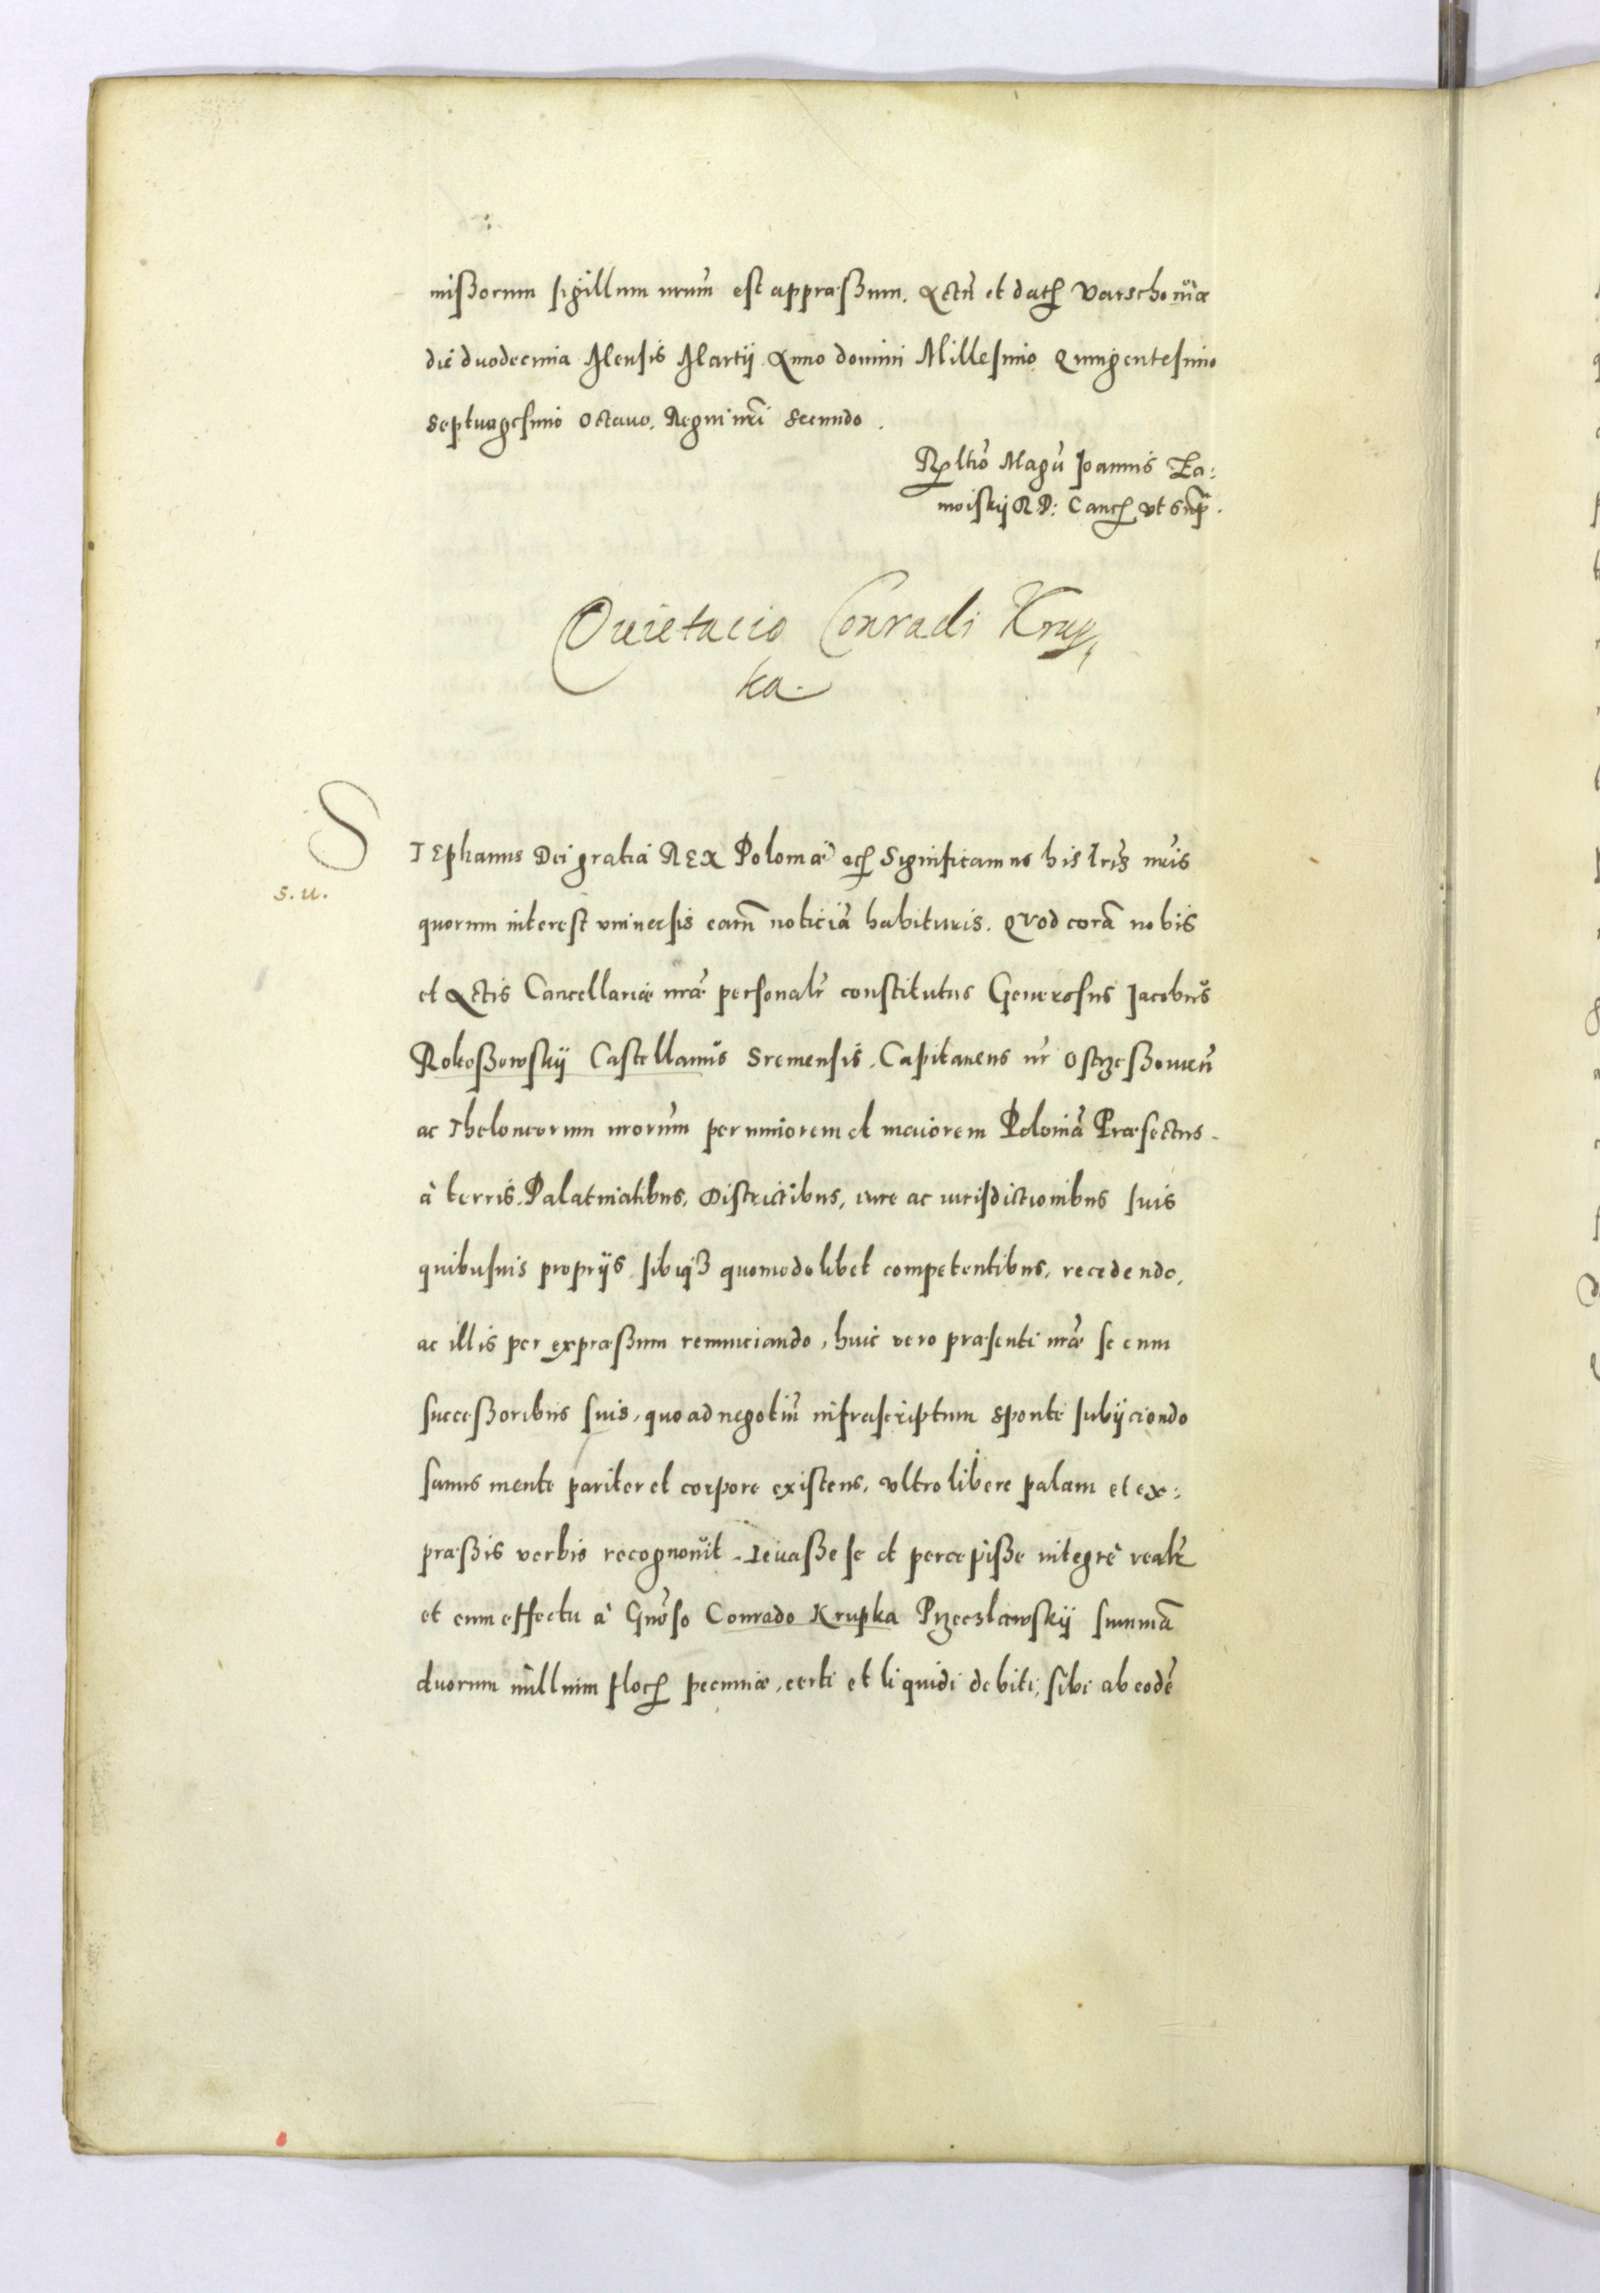 mißorum sigillum nrum est appræßum. Actu et dat Varschoviæ
die duodecima Mensis Martij Anno domini Millesimo Quingentesimo
Septuagesimo Octavo. Regni nri Secundo.
Rltio Magci Joannis Za:
moiskij R P: Canc ut supra.
Quietacio Conradi Krup
ka.
S
s. u.
TEphanus Dei gratia REX Poloniæ etc Significamus his lris nris
quorum interest universis earum noticiã habituris. Quod corã nobis
et Actis Cancellariæ nræ personalr constitutus Generosus Jacobus
Rokoßowskij Castellanus Sremensis, Capitaneus nr Ostrzeßouieñ
ac Theloneorum nrorum per minorem et maiorem Poloniã Præfectus.
à terris, Palatinatibus, Districtibus, iure ac iurisdictionibus suis
quibusuis proprijs sibiqz quomodolibet competentibus, recedendo,
ac illis per expræßum renunciando, huic vero præsenti nræ se cum
succeßoribus suis, quo ad negotiũ infrascriptum sponte subijciendo
sanus mente pariter et corpore existens, ultro libere palam et ex:
præßis verbis recognovit. Levaße se et percepiße integrè realr
et cum effectu à Gnoso Conrado Krupka Przeczlawskij summã
duorum millium flor pecuniæ, certi et liquidi debiti, sibi ab eodẽ